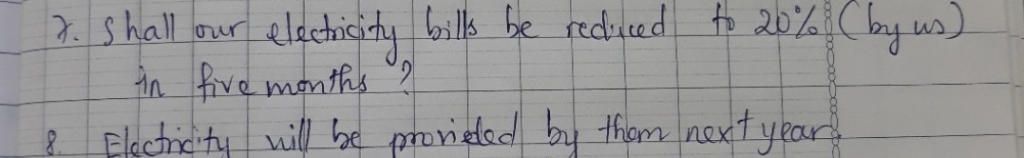 7. Shall our electricity bills be reduced to 20% (by us)
in five months ?
8. Electricity will be provided by them next year.